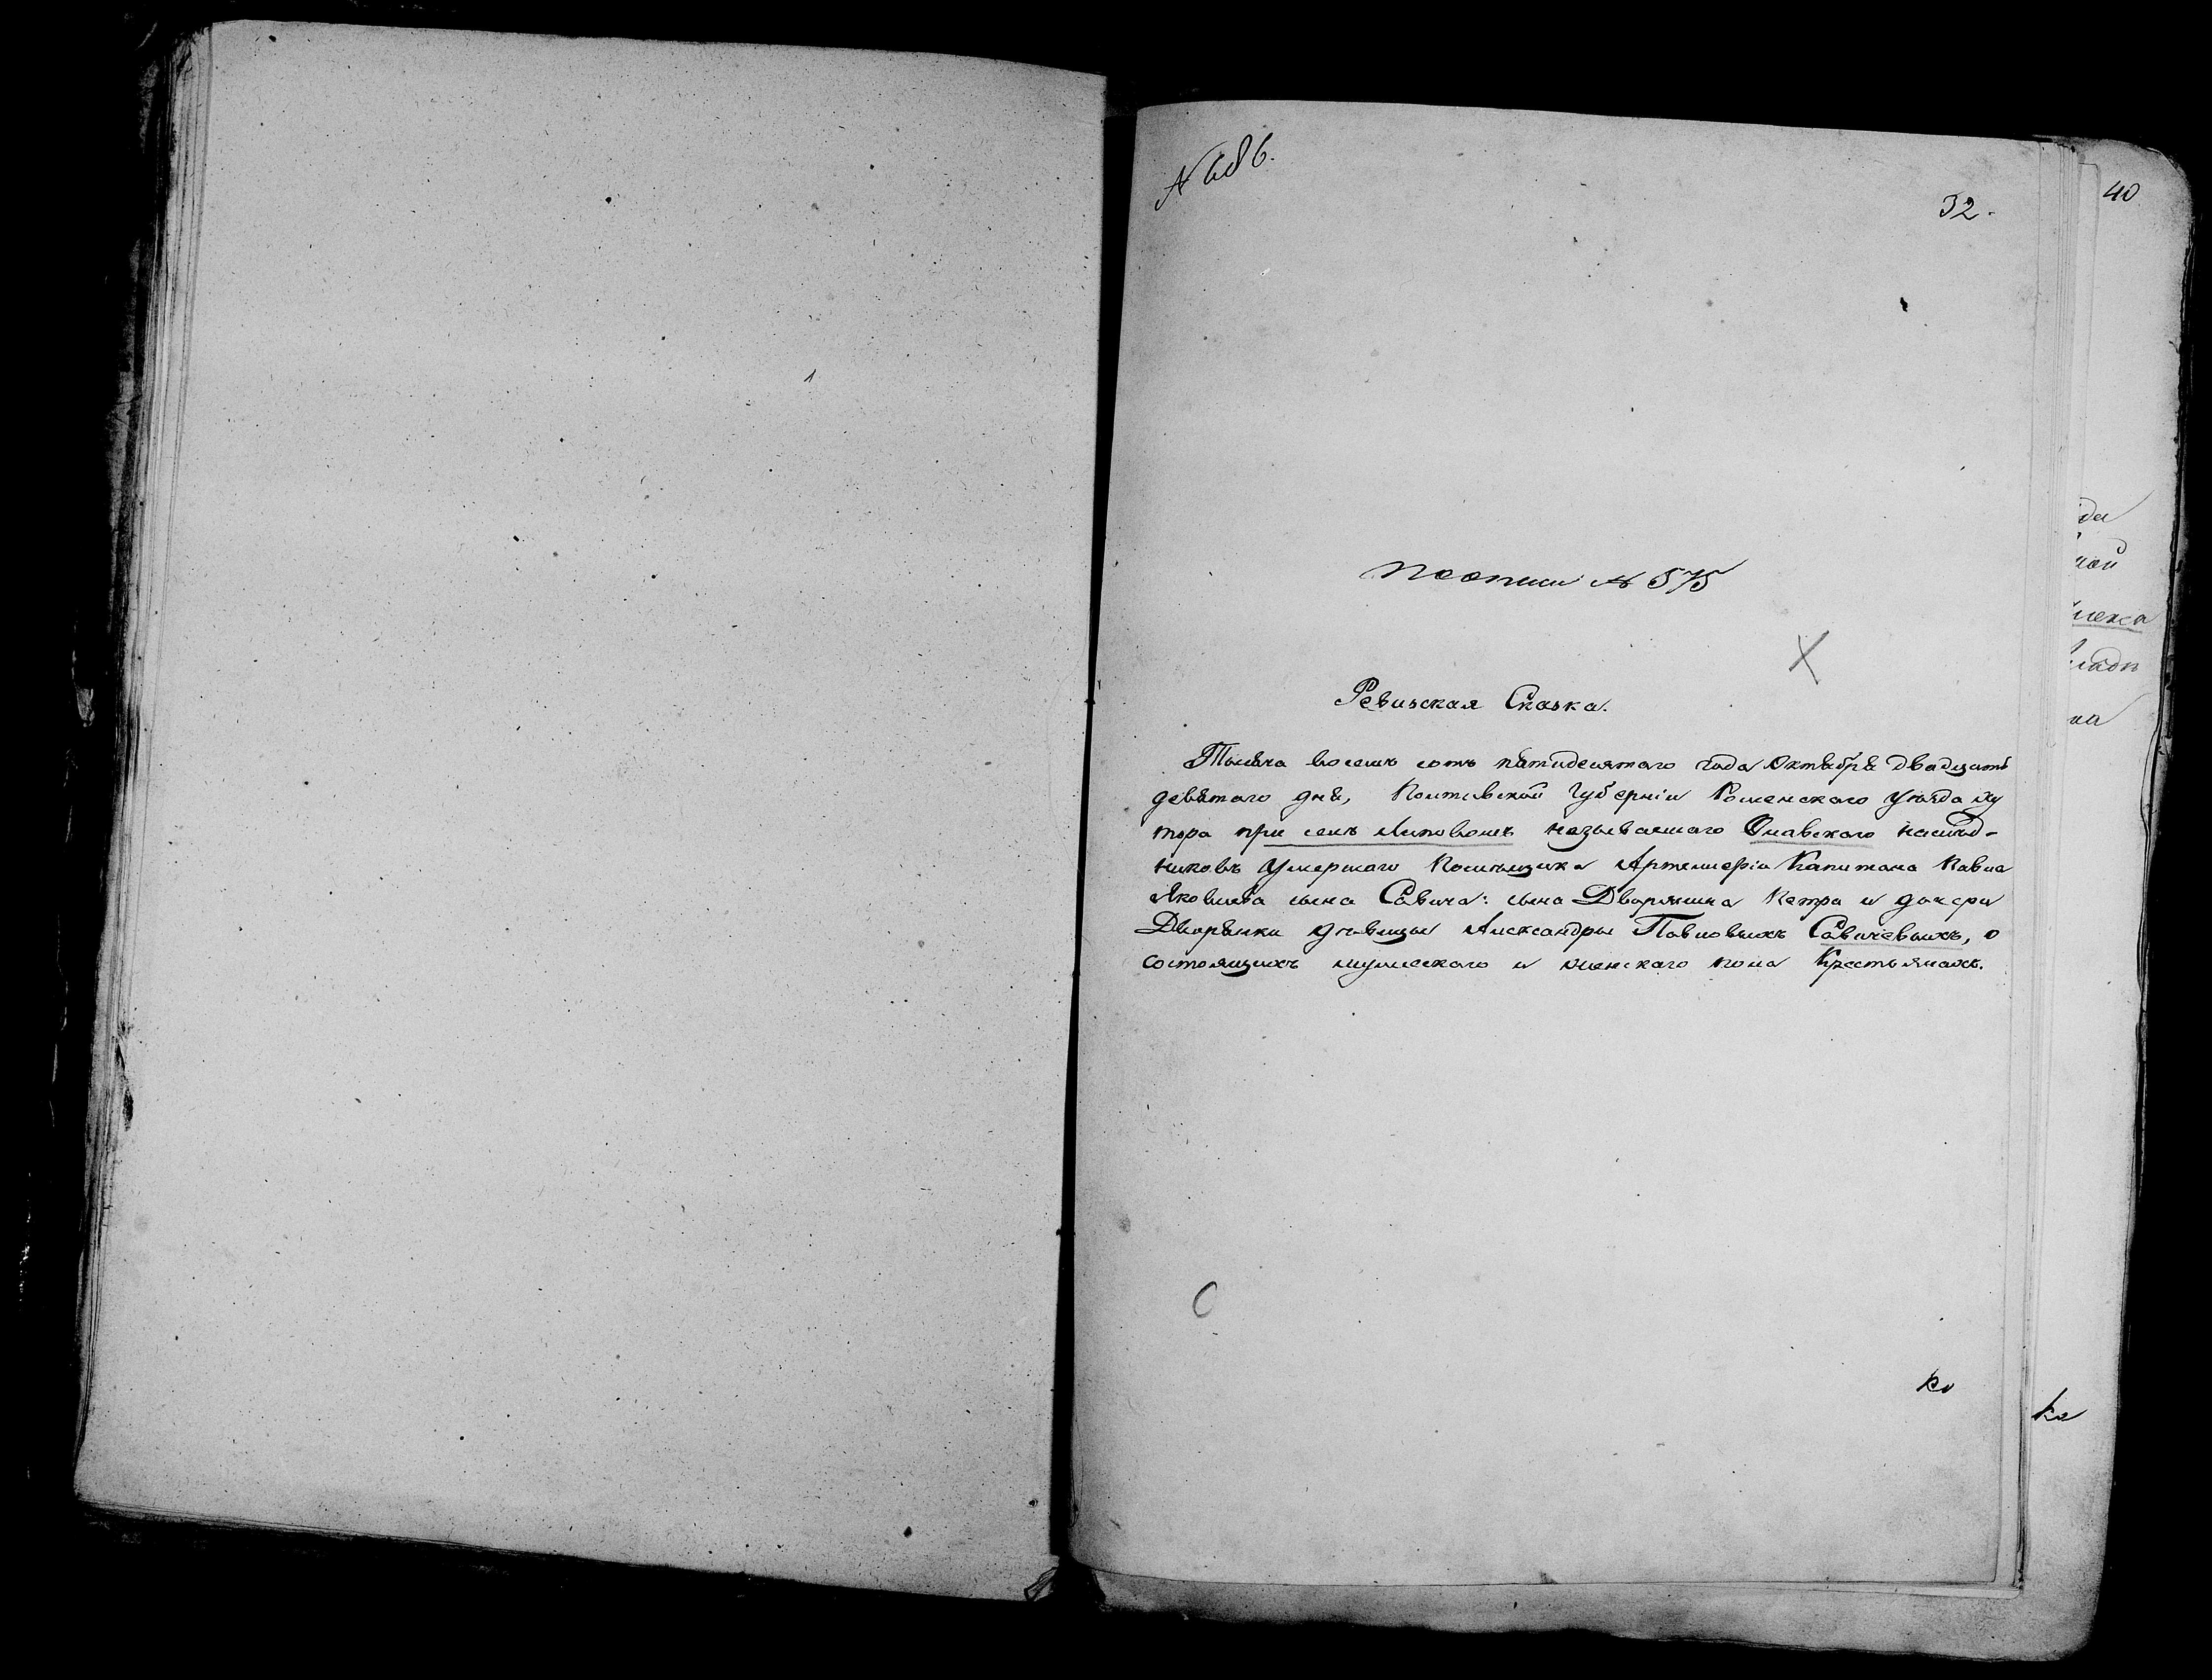 № 686.
32.
40
по описи № 575
Ревизская Сказка.
Тысяча восемь сотъ пятидесятаго года Октября двадцать
девятаго дня, Полтавской Губерніи Роменскаго уѣзда Ху
тора при селѣ Липовомъ называемаго наслѣд-
никовъ умершаго Помѣщика Артиллеріи Капитана Павла
Яковлева сына Савича: сына Дворянина Петра и дочери
Дворянки дѣвицы Александры Павловыхъ Савичевыхъ, о
состоящихъ мужескаго и женскаго пола Крестьянахъ.
С
ко